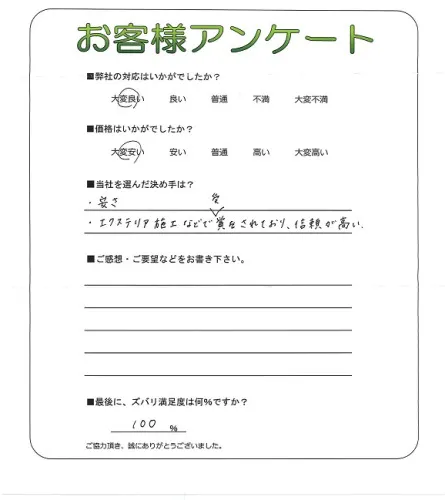 お客様アンケート
■弊社の対応はいかがでしたか？
大変良い 良い 普通 不満 大変不満
■価格はいかがでしたか？
大変安い 安い 普通 高い 大変高い
■当社を選んだ決め手は？
・安さ
受
・エクステリア施工などで賞をされており、信頼が高い.
■ご感想・ご要望などをお書き下さい。
■最後に、ズバリ満足度は何%ですか？
100 %
ご協力頂き、誠にありがとうございました。